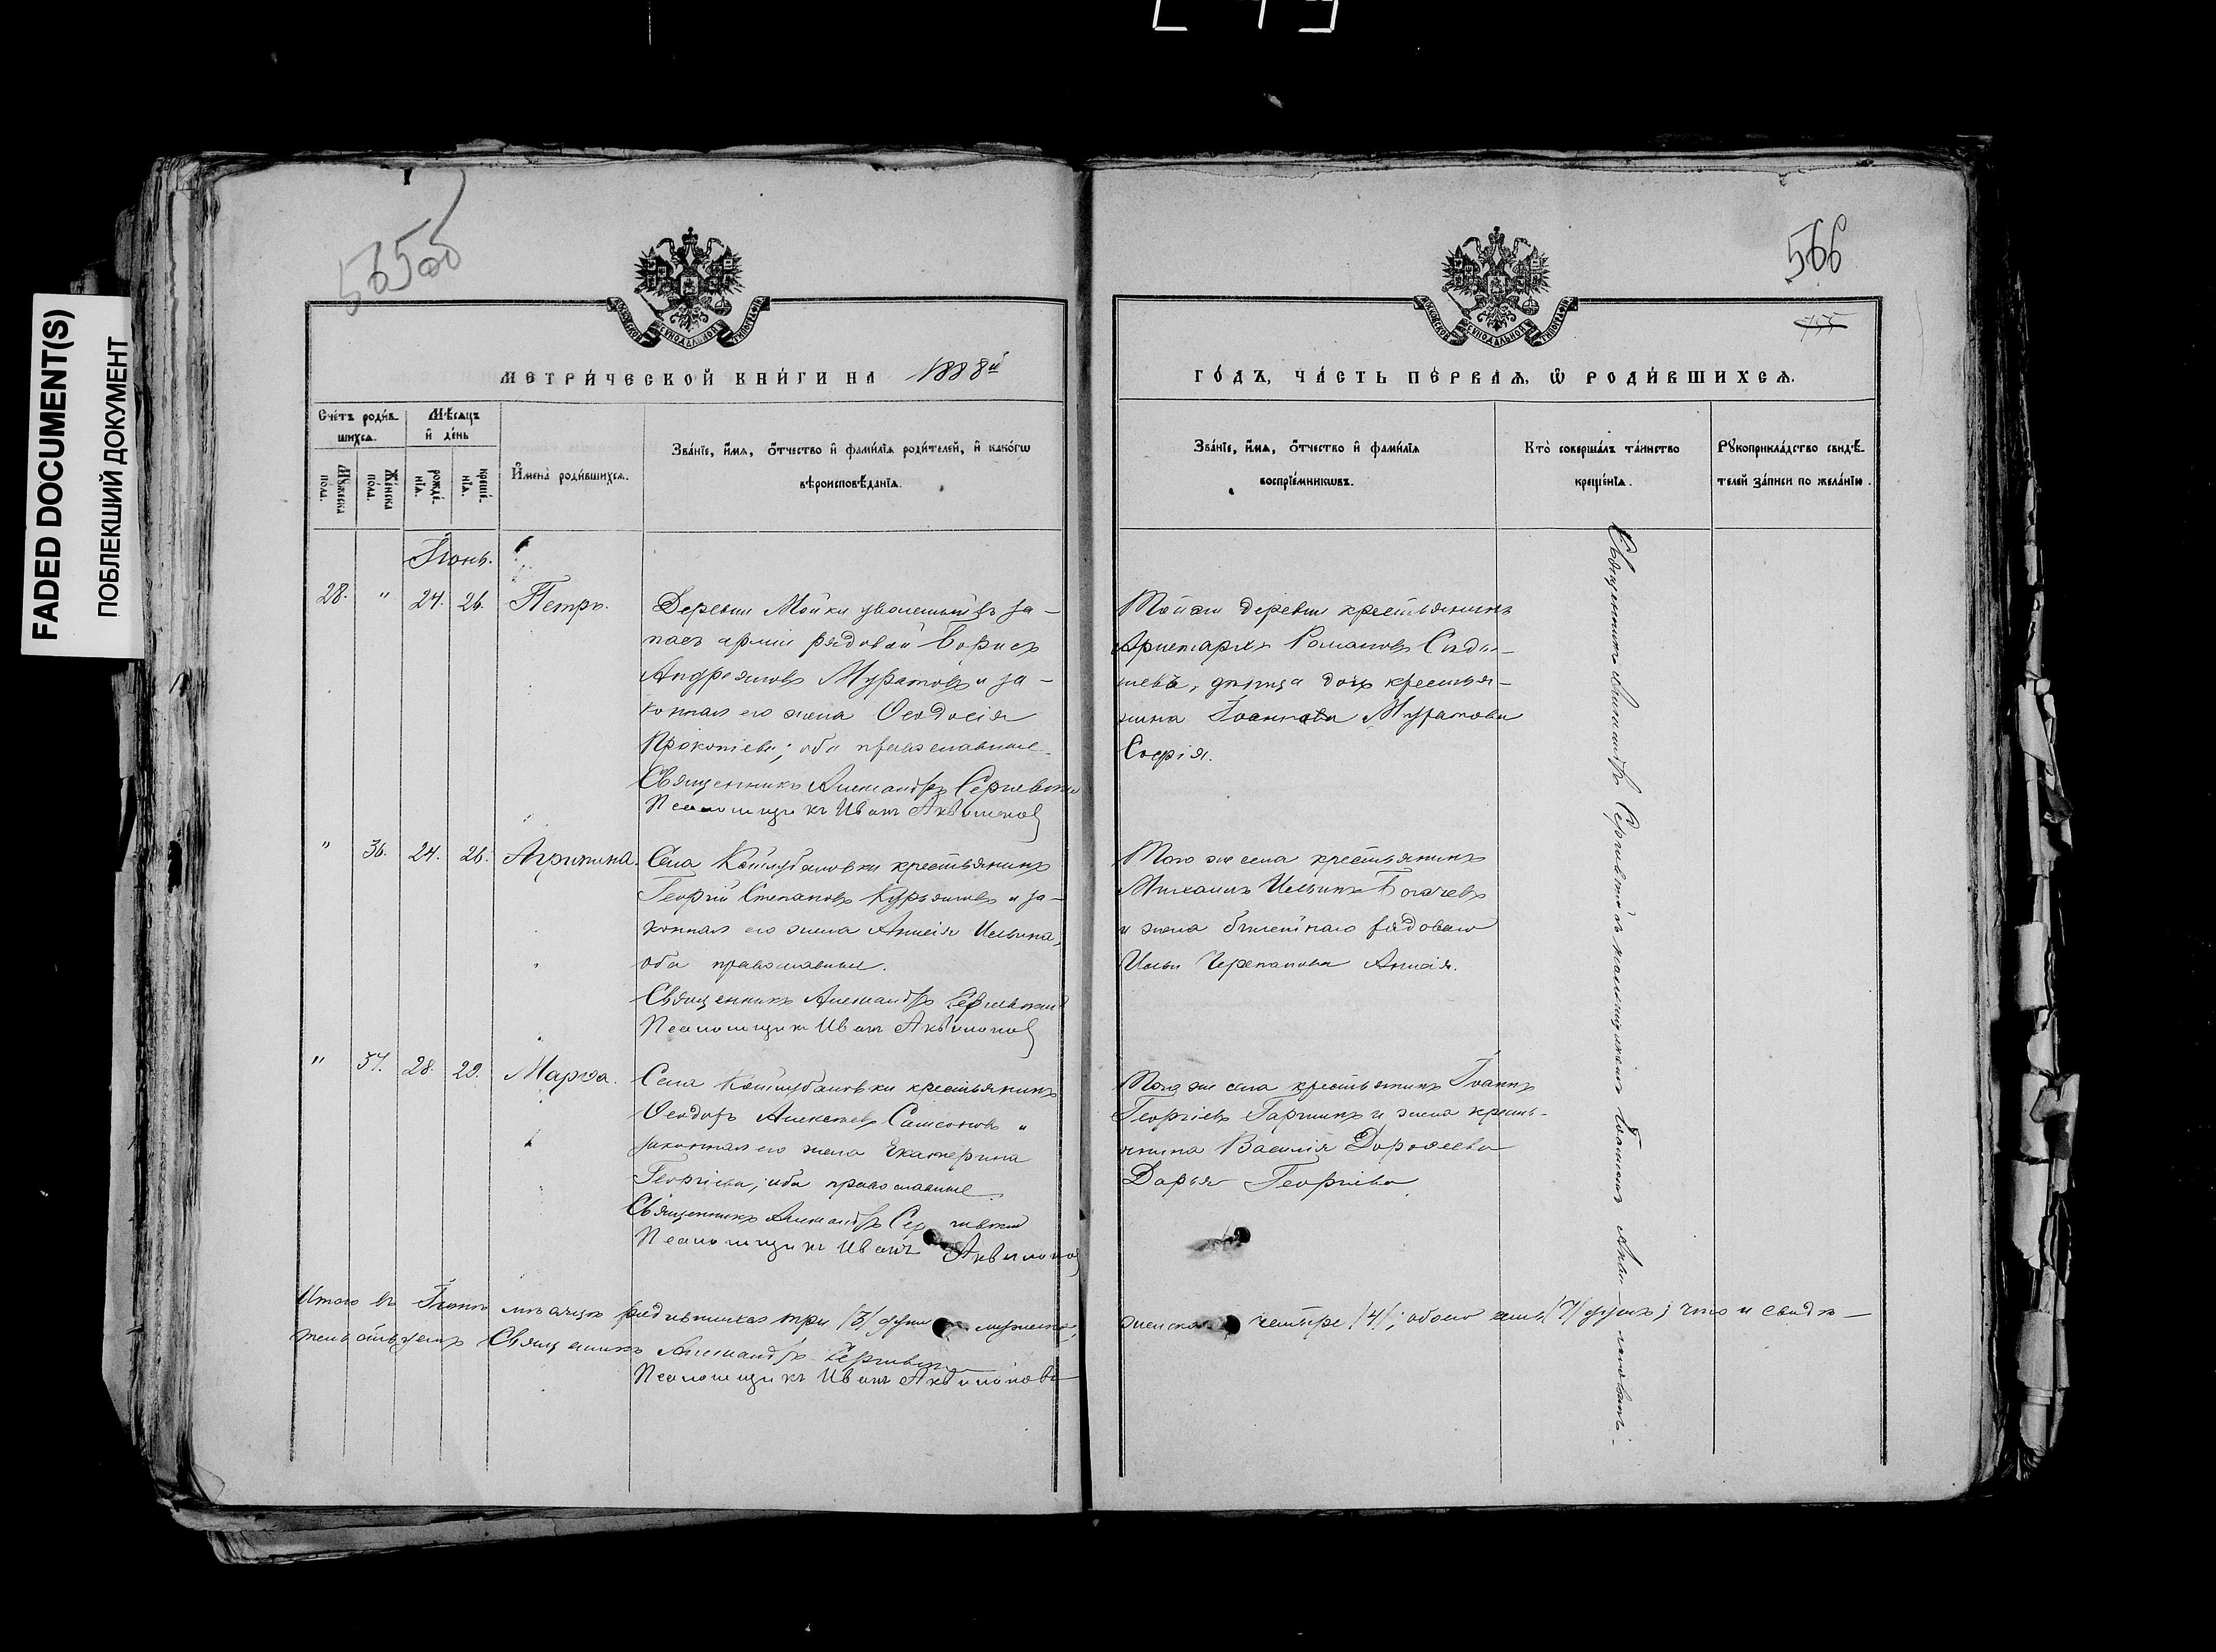 FADED DOCUMENT(S)
ПОБЛЕКШИЙ ДОКУМЕНТ
566
МЕТРИ́ЧЕСКОЙ КНИ́ГИ НА 1888й
ГО́ДЪ, ЧА́СТЬ ПЕ́РВАѦ, Ѿ РОДИ́ВШИХСѦ.
Сче́тъ роди́в-
шихсѧ.
Мѣ́сѧцъ
и҆ де́нь
Мꙋ́жеска
по́ла.
Же́нска
по́ла.
рожде́-
нїѧ.
креще́-
нїѧ.
И҆мена̀ роди́вшихсѧ.
Зва́нїе, и҆́мѧ, ѻ҆́тчество и҆ фами́лїѧ роди́телей, и҆ како́гѡ
вѣроисповѣ́данїѧ.
Зва́нїе, и҆́мѧ, ѻ҆́тчество и҆ фами́лїѧ
воспрїе́мникѡвъ.
Кто̀ соверша́лъ та́инство
креще́нїѧ.
Рꙋкоприкла́дство свидѣ́-
телей за́писи по жела́нїю.
Іюнь.
28. " 24. 26. Петръ.
Деревни Мойки уволенный въ за-
пасъ арміи рядовой Борисъ
Андреяновъ Муратовъ и за-
конная его жена Ѳеодосія
Прокопіева; оба православные.
Священникъ Александръ Сергіевскій
Псаломщикъ Иванъ Аквилоновъ
Той же деревни крестьянинъ
Аристархъ Романовъ
дѣвица дочь крестья-
нина Іоаннова Муратова
Софія.
" 36. 24. 26. Агрипина.
Села крестьянинъ
Георгій Степановъ Курьяновъ и за-
конная его жена Анисія Ильина,
оба православные.
Священникъ Александръ Сергіевскій
Псаломщикъ Иванъ Аквилоновъ
Того же села крестьянинъ
Михаилъ Ильинъ Богачевъ
и жена билетнаго рядоваго
Ильи Черепанова Анисія.
" 37. 28. 29. Марѳа.
Села крестьянинъ
Ѳеодоръ Алексѣевъ Самсоновъ и
законная его жена Екатерина
Георгіева; оба православные.
Священникъ Александръ Сергіевскій
Псаломщикъ Иванъ Аквилоновъ
Того же села крестьянинъ Іоаннъ
Георгіевъ Гаршинъ и жена кресть-
янина Василія Дороѳеева
Дарья Георгіева
Священникъ Александръ Сергіевскій съ псаломщикомъ Іоанномъ Аквилоновымъ.
Итого въ Іюнѣ мѣсяцѣ родившихся три /3/ души мужеска,
женска четыре /4/; обоего семь /7/ душъ; что и свидѣ-
тельствуемъ Священникъ Александръ Сергіевскій
Псаломщикъ Иванъ Аквилоновъ